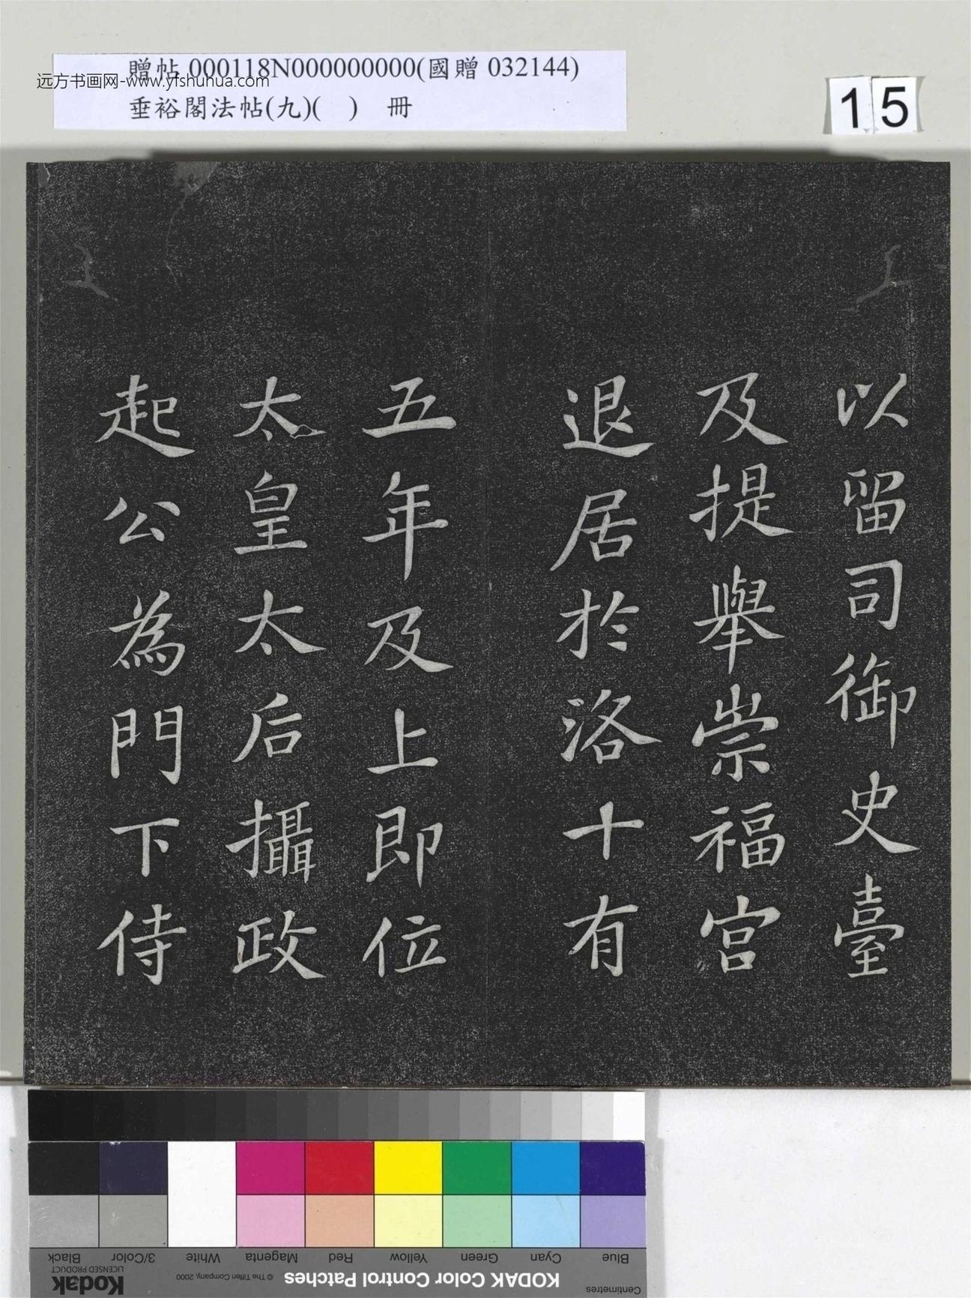 贈帖 000118N000000000(國贈 032144)
远方书画网-www.yishuhua.com
垂裕閣法帖(九)( ) 冊
15
以留司御史臺
及提舉崇福宮
退居於洛十有
五年及上即位
太皇太后攝政
起公為門下侍
Black 3/Color White Magenta Red Yellow Green Cyan Blue
Kodak LICENSED PRODUCT © The Tiffen Company, 2000 KODAK Color Control Patches Centimetres